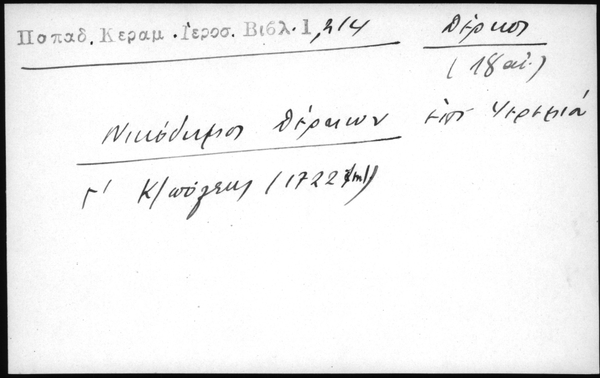 Παπαδ. Κεραμ. Ἱεροσ. Βιβλ. 1, 214
Δέρκοι
(18 αἰ.)
Νικόδημος Δέρκων ἐπὶ Ἱερεμίου
Γ' Κ/πόλεως (1722